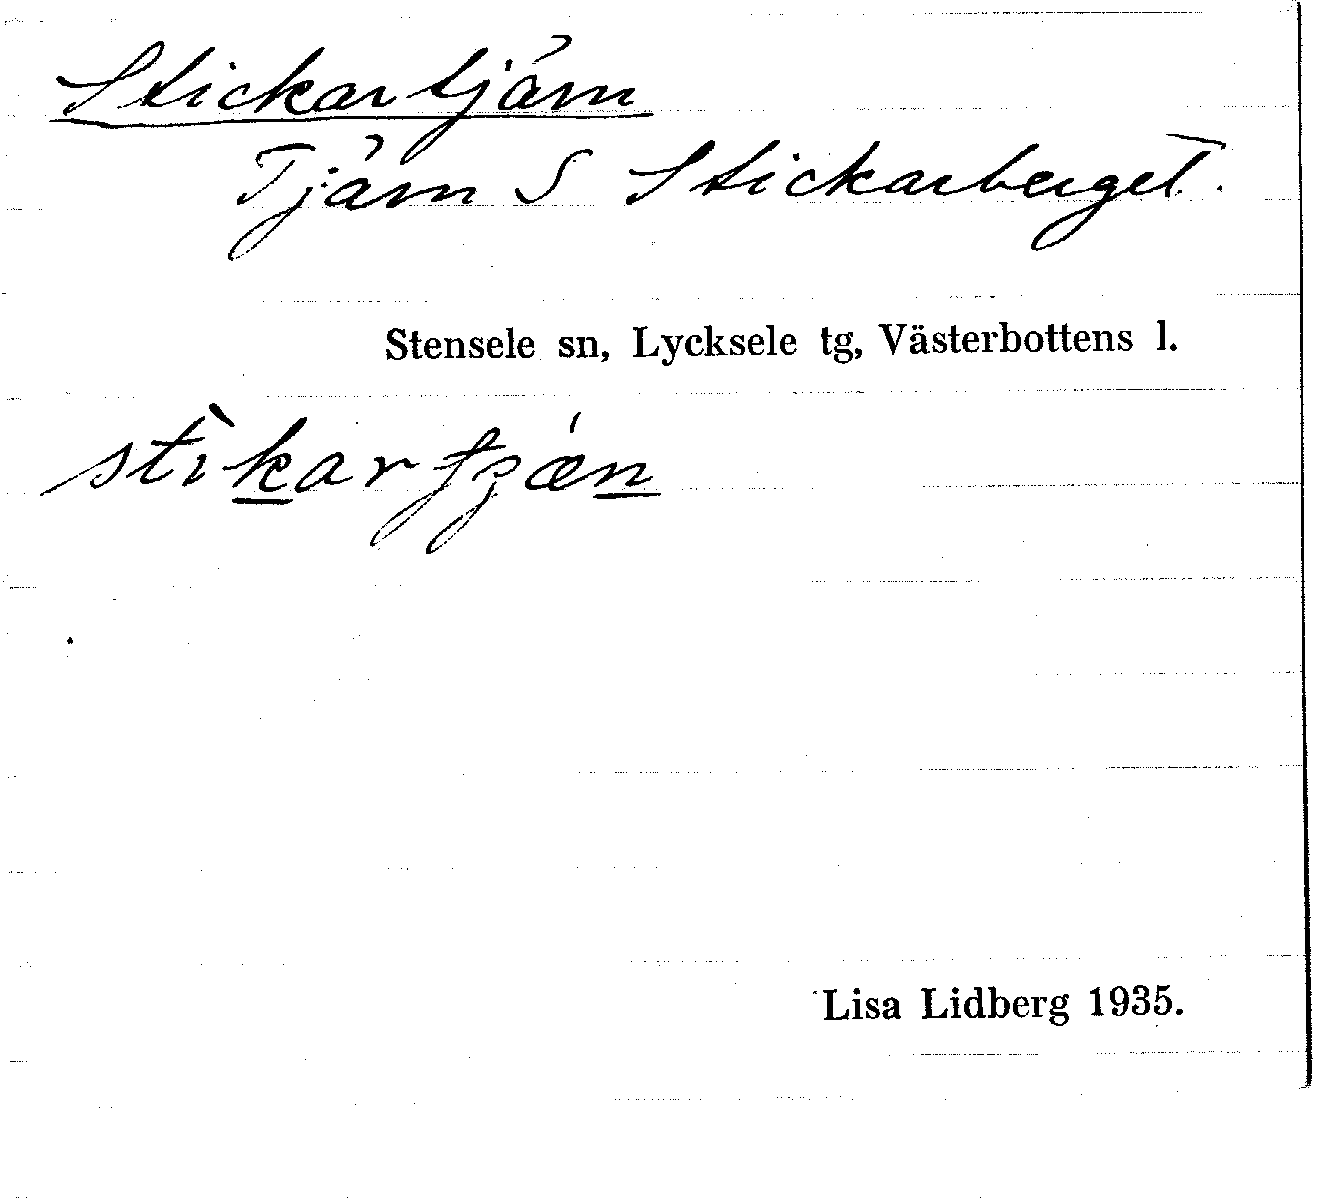 Stickartjärn
Tjärn S Stickarberget.
Stensele sn, Lycksele tg, Västerbottens l.
Lisa Lidberg 1935.